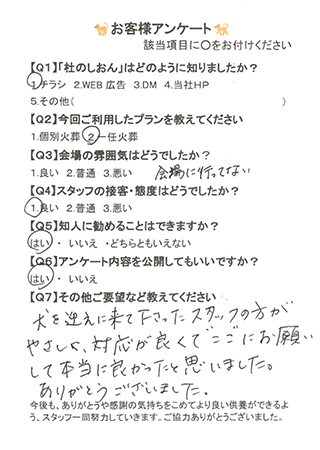 お客様アンケート
該当項目に〇をお付けください
【Q1】「杜のしおん」はどのように知りましたか?
1.チラシ 2.WEB広告 3.DM 4.当社HP
5.その他( )
【Q2】今回ご利用したプランを教えてください
1.個別火葬 2.一任火葬
【Q3】会場の雰囲気はどうでしたか?
1.良い 2.普通 3.悪い 会場に行ってない
【Q4】スタッフの接客・態度はどうでしたか?
1.良い 2.普通 3.悪い
【Q5】知人に勧めることはできますか?
はい ・ いいえ ・どちらともいえない
【Q6】アンケート内容を公開してもいいですか?
はい ・ いいえ
【Q7】その他ご要望など教えてください
犬を迎えに来て下さったスタッフの方が
やさしく、対応が良くてここにお願い
して本当に良かったと思いました。
ありがとうございました。
今後も、ありがとうや感謝の気持ちをこめてより良い供養ができるよ
う、スタッフ一同努力していきます。ご協力ありがとうございました。